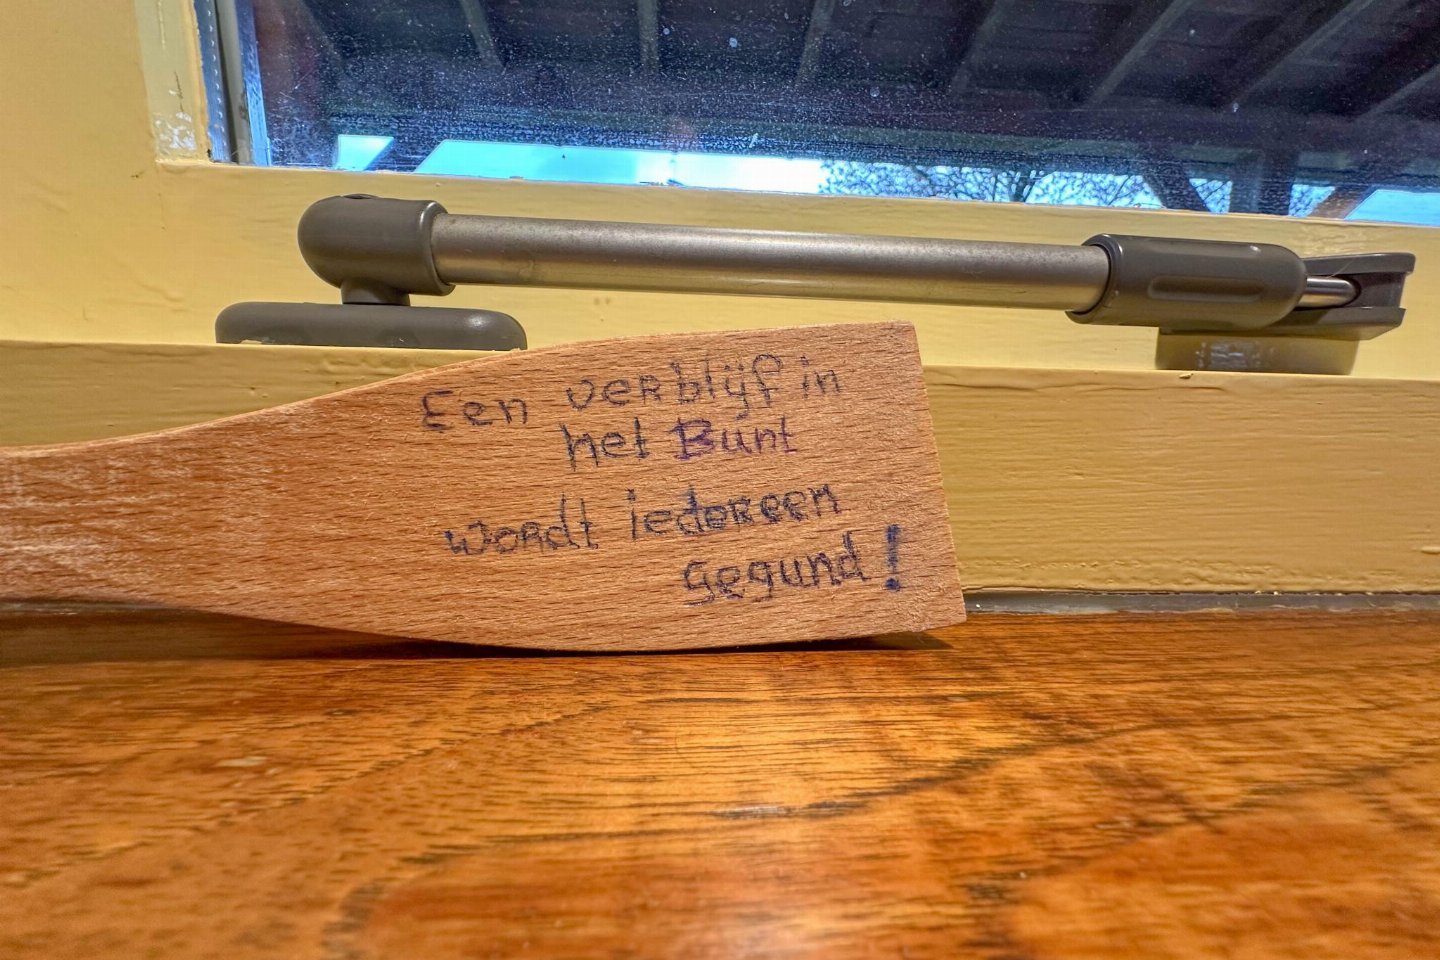 Een verblijf in
het Bunt
wordt iedereen
gegund!